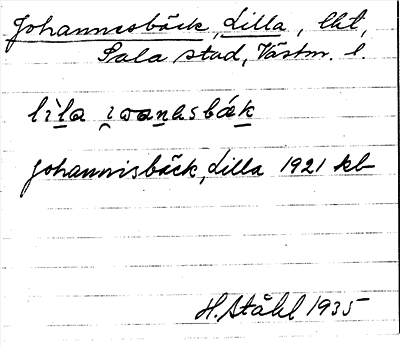 Johannesbäck, Lilla, lht,
Sala stad, Västm. l.
lìla ɩwanɩsbák
Johannisbäck, Lilla 1921 kb
H. Ståhl 1935